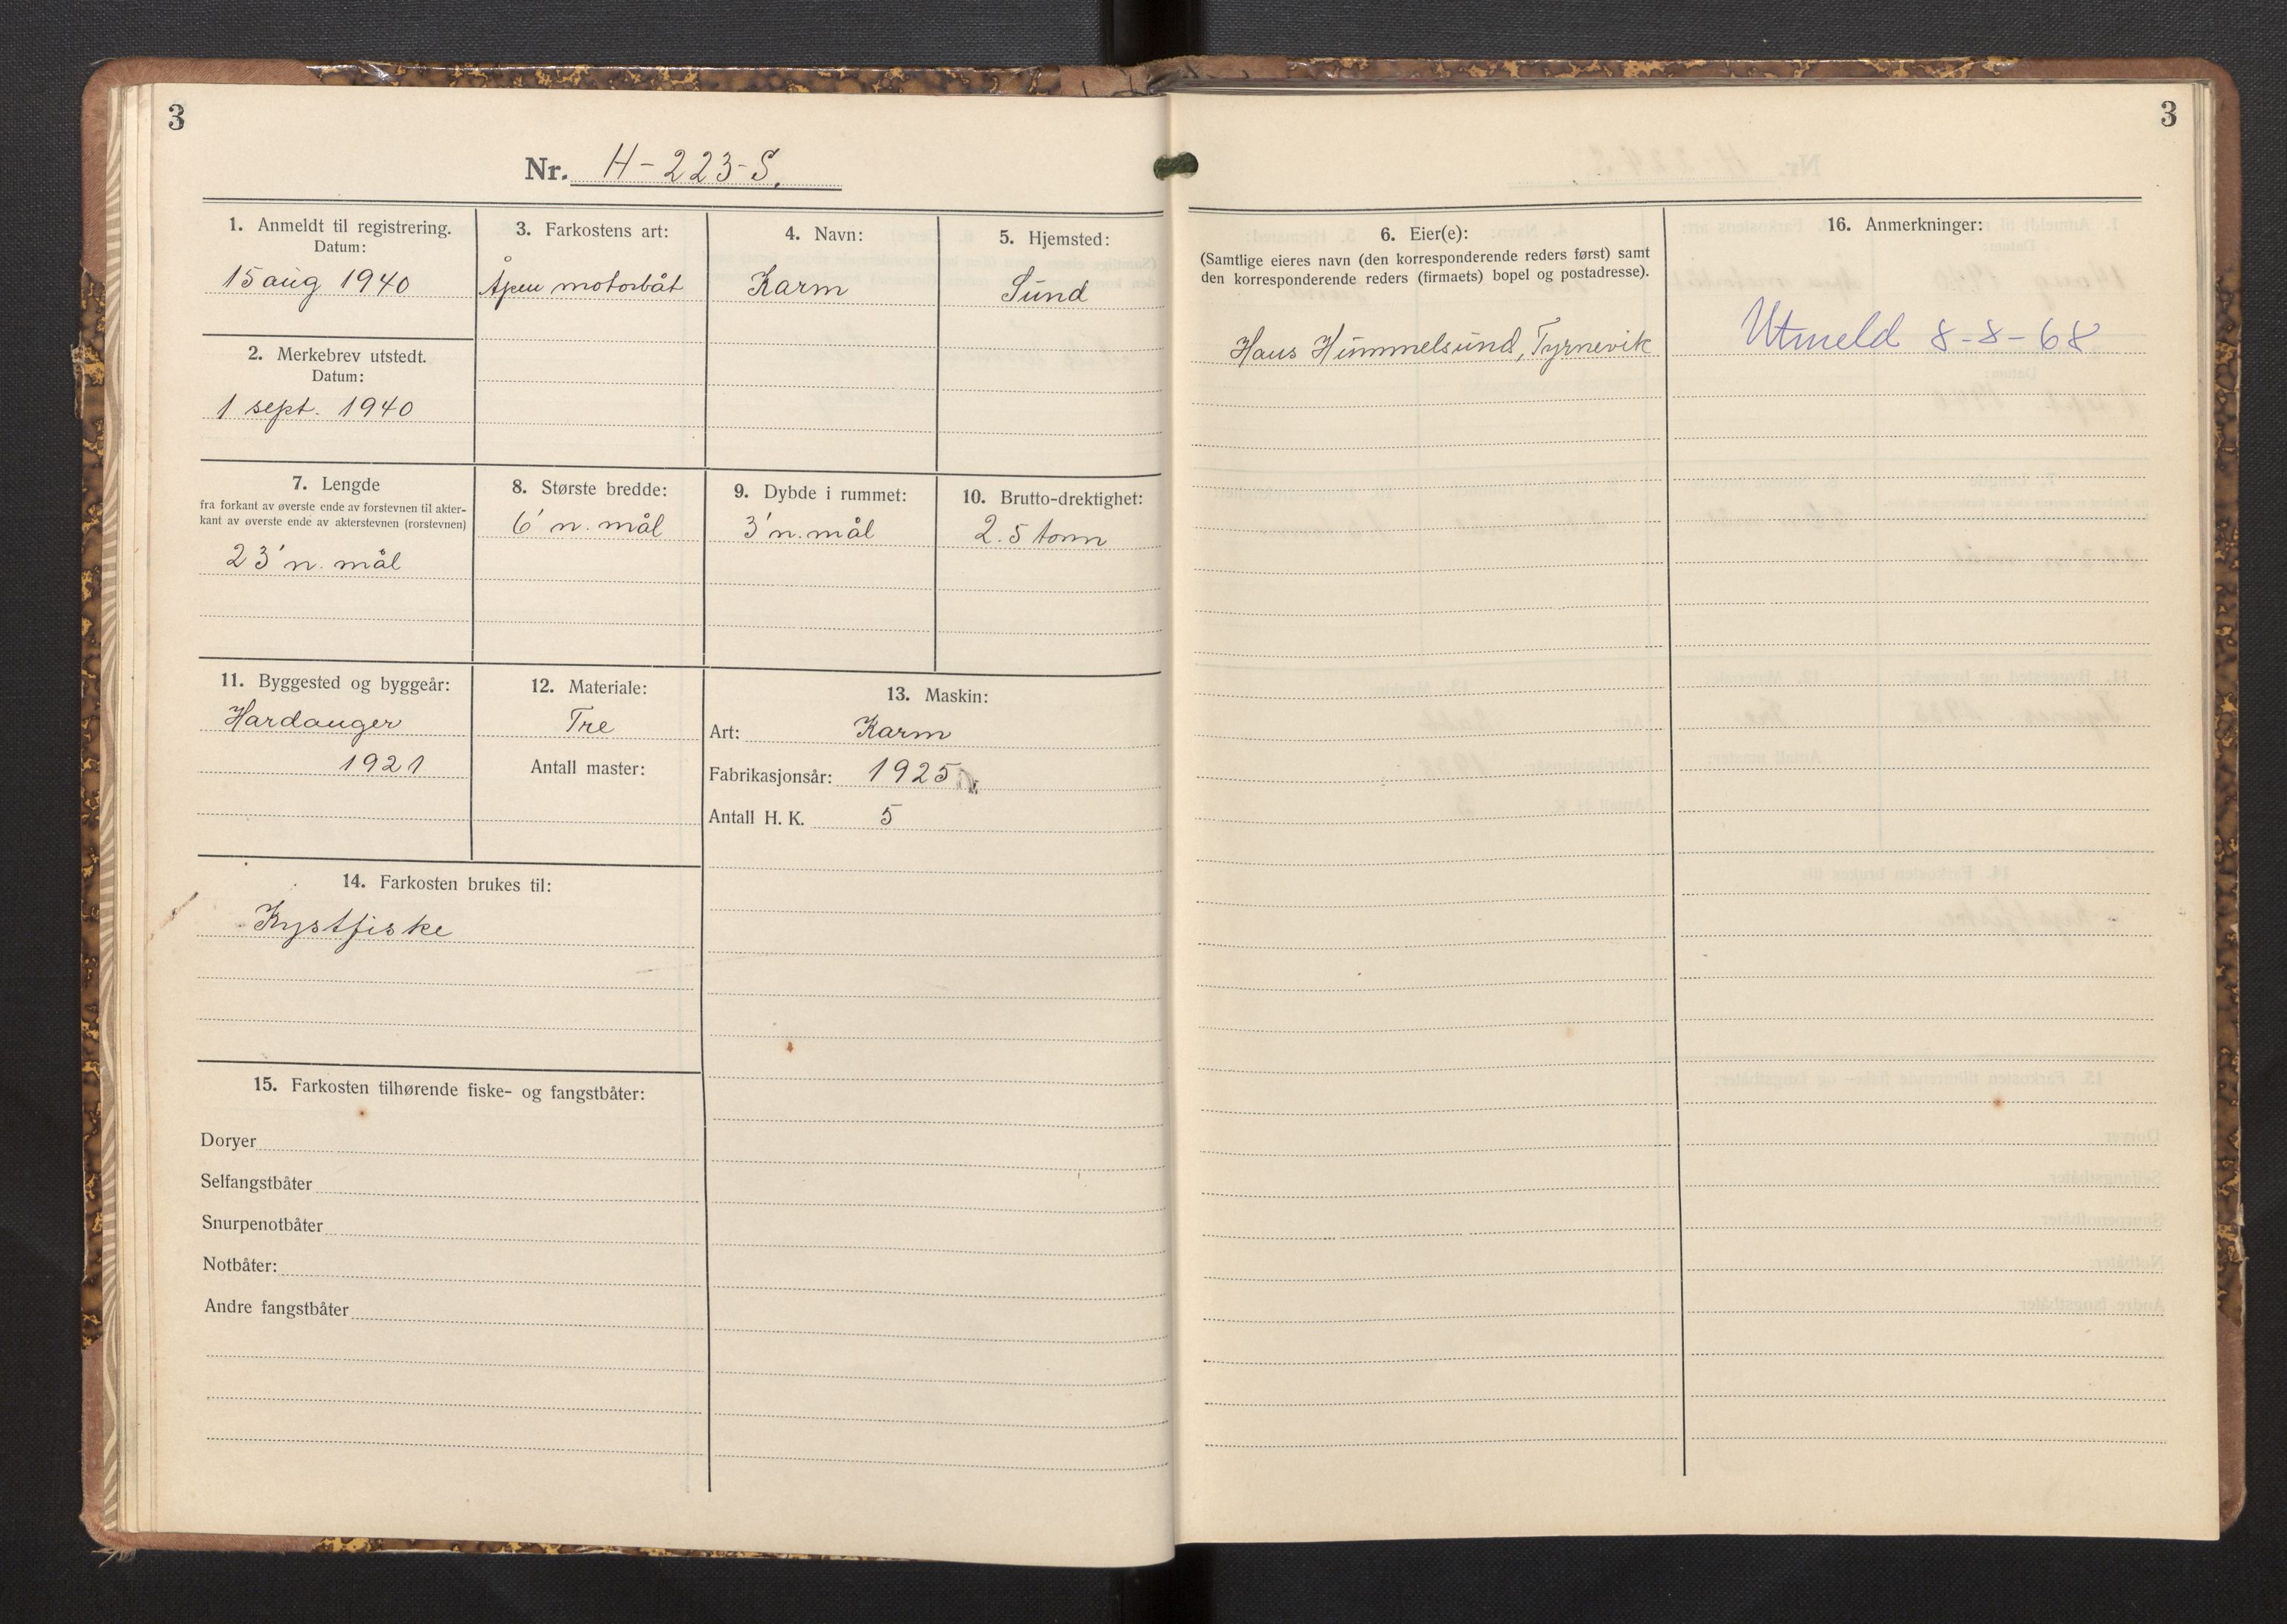 3
Nr. H-223-S.
1. Anmeldt til registrering.
Datum:
15 aug 1940
2. Merkebrev utstedt.
Datum:
1 sept. 1940
3. Farkostens art:
Åpen motorbåt
4. Navn:
Karm
5. Hjemsted:
Sund
7. Lengde
fra forkant av øverste ende av forstevnen til akter-
kant av øverste ende av akterstevnen (rorstevnen)
23' n. mål
8. Største bredde:
6' n. mål
9. Dybde i rummet:
3' n. mål
10. Brutto-drektighet:
2.5 tonn
11. Byggested og byggeår:
Hardanger
1921
12. Materiale:
Tre
Antall master:
13. Maskin:
Art: Karm
Fabrikasjonsår: 1925
Antall H. K. 5
14. Farkosten brukes til:
Kystfiske
15. Farkosten tilhørende fiske- og fangstbåter:
Doryer
Selfangstbåter
Snurpenotbåter
Notbåter:
Andre fangstbåter
3
6. Eier(e):
(Samtlige eieres navn (den korresponderende reders først) samt
den korresponderende reders (firmaets) bopel og postadresse).
Hans Hummelsund, Tyrnevik
16. Anmerkninger:
Utmeld 8-8-68